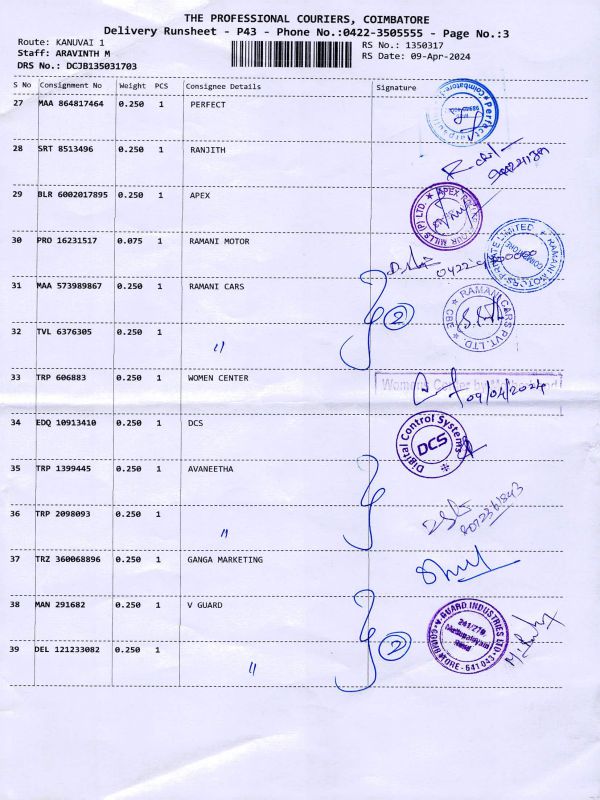 THE PROFESSIONAL COURIERS, COIMBATORE
Delivery Runsheet - P43 - Phone No.:0422-3505555 - Page No.:3
Route: KANUVAI 1
Staff: ARAVINTH M
DRS No.: DCJB135031703
RS No.: 1350317
RS Date: 09-Apr-2024
S No Consignment No Weight PCS Consignee Details Signature
27 MAA 864817464 0.250 1 PERFECT
28 SRT 8513496 0.250 1 RANJITH
29 BLR 6002017895 0.250 1 APEX
30 PRO 16231517 0.075 1 RAMANI MOTOR
RAMANI MOTORS PRIVATE LIMITED
31 MAA 573989867 0.250 1 RAMANI CARS
2
RAMANI CARS PVT. LTD. ★ CBE ★
32 TVL 6376305 0.250 1 "
33 TRP 606883 0.250 1 WOMEN CENTER
09/04/2024
34 EDQ 10913410 0.250 1 DCS
Digital Control Systems
DCS
35 TRP 1399445 0.250 1 AVANEETHA
36 TRP 2098093 0.250 1 "
37 TRZ 360068896 0.250 1 GANGA MARKETING
38 MAN 291682 0.250 1 V GUARD
V.GUARD INDUSTRIES LTD
241/270,
Mettupalayam
Road
COIMBATORE-641 043
39 DEL 121233082 0.250 1 "
2